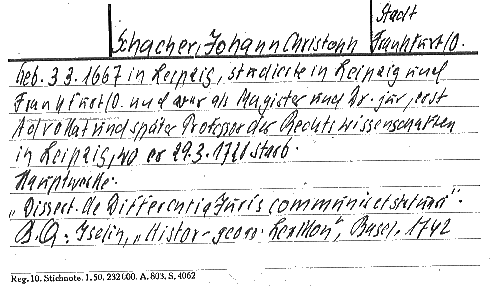 Stadt
Schacher, Johann Christoph Frankfurt/O.
Geb. 3.3.1667 in Leipzig, studierte in Leipzig und
Frankfurt/O. und war als Magister und Dr. jur., erst
Advokat und später Professor der Rechtswissenschaften
in Leipzig, wo er 29.3.1721 starb.
Hauptwerke:
"Dissert. de Differentia Juris communis et
B.Q.: Iselin, "Histor-geogr. Lexikon", Basel. 1742
Reg. 10. Stichnote. 1.50, 232000. A. 803. S. 4062